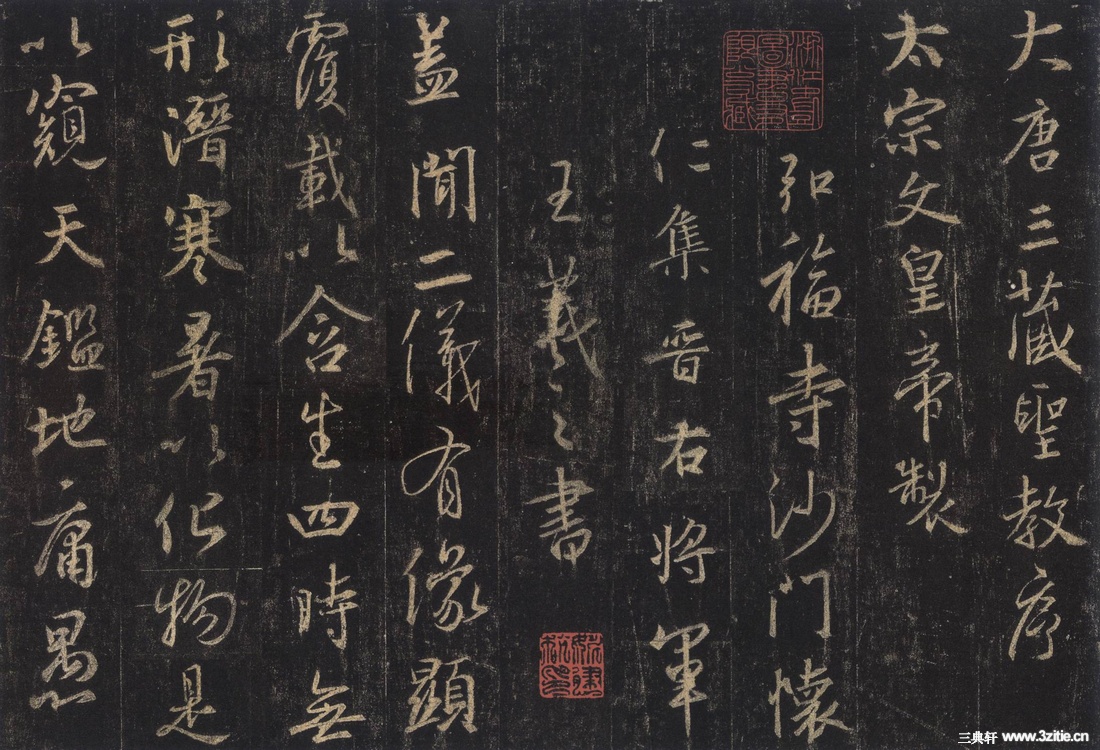 大唐三藏聖教序
太宗文皇帝製
弘福寺沙門懷
仁集晉右將軍
王羲之書
蓋聞二儀有像顯
覆載以含生四時無
形潛寒暑以化物是
以窺天鑑地庸愚
三典轩 www.3zitie.cn